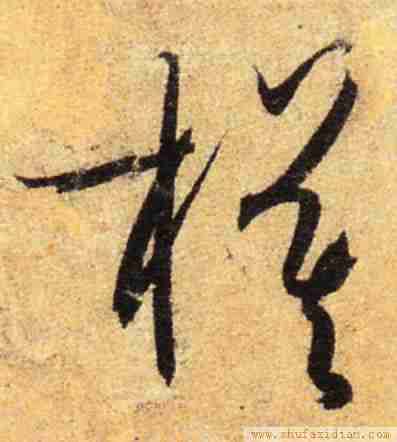 模
www.shufazidian.com